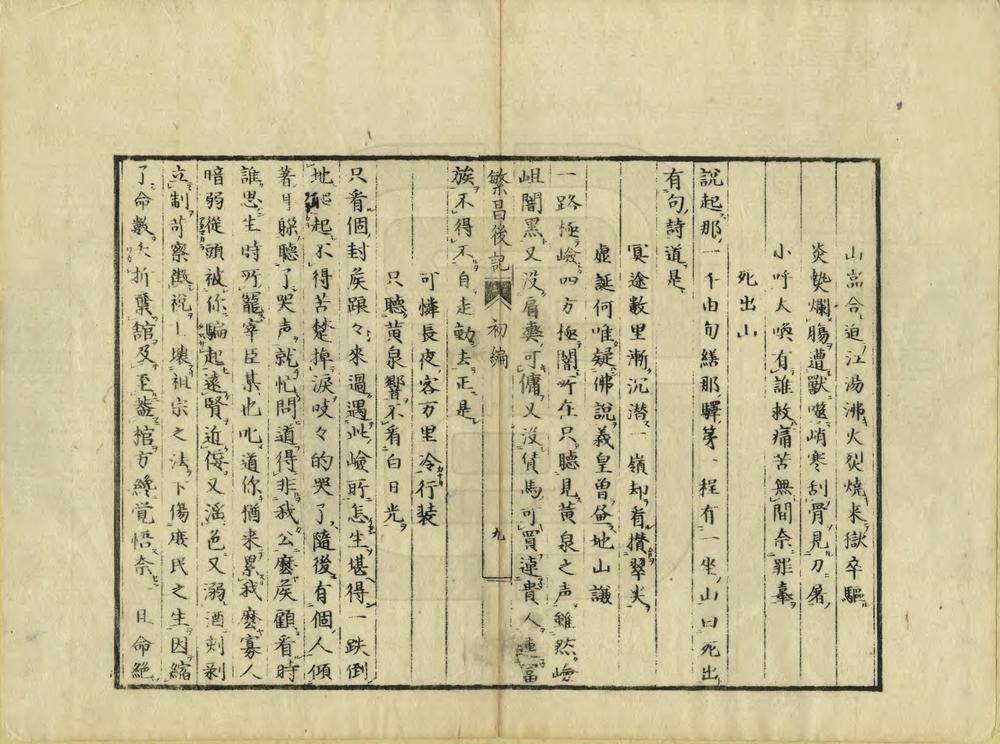 山高合迫江湯沸火烈燒来獄卒驅
炎𤍠爛膓遭獸噬峭寒刮骨見刀屠
小呼大喚有誰救痛苦無間奈罪辜
死出山
說起那一千由旬繕那驛茅一程有一坐山曰死出
有句詩道是
冥途数里漸沉潜一嶺却看攅翠尖
虚誕何唯疑佛說義皇曽俻地山謙
一路極嶮四方極闇所在只聽見黄泉之声雖然嶮
岨闇黑又沒肩輿可傭又沒僨馬可買連貴人連冨
繁昌後記
初編
九
族不得不自走動去正是
可憐長夜客万里冷行装
只聽黄泉響不看白日光
只看個封侯踉々来過遇此嶮所怎生堪得一跌倒
地爬起不得苦楚掉淚吱々的哭了隨後有個人傾
着耳躲聽了哭声就忙問道得非我公麽侯顧看時
誰思生時所寵宰臣某也叱道你猶来累我麽寡人
暗弱從頭被你騙起遠賢近佞又滛色又溺酒剌剥
立制苛察徴税上壊祖宗之法下傷庶民之生因縮
了命数夭折棄舘及至葢棺方纔覚悟奈一旦命絶